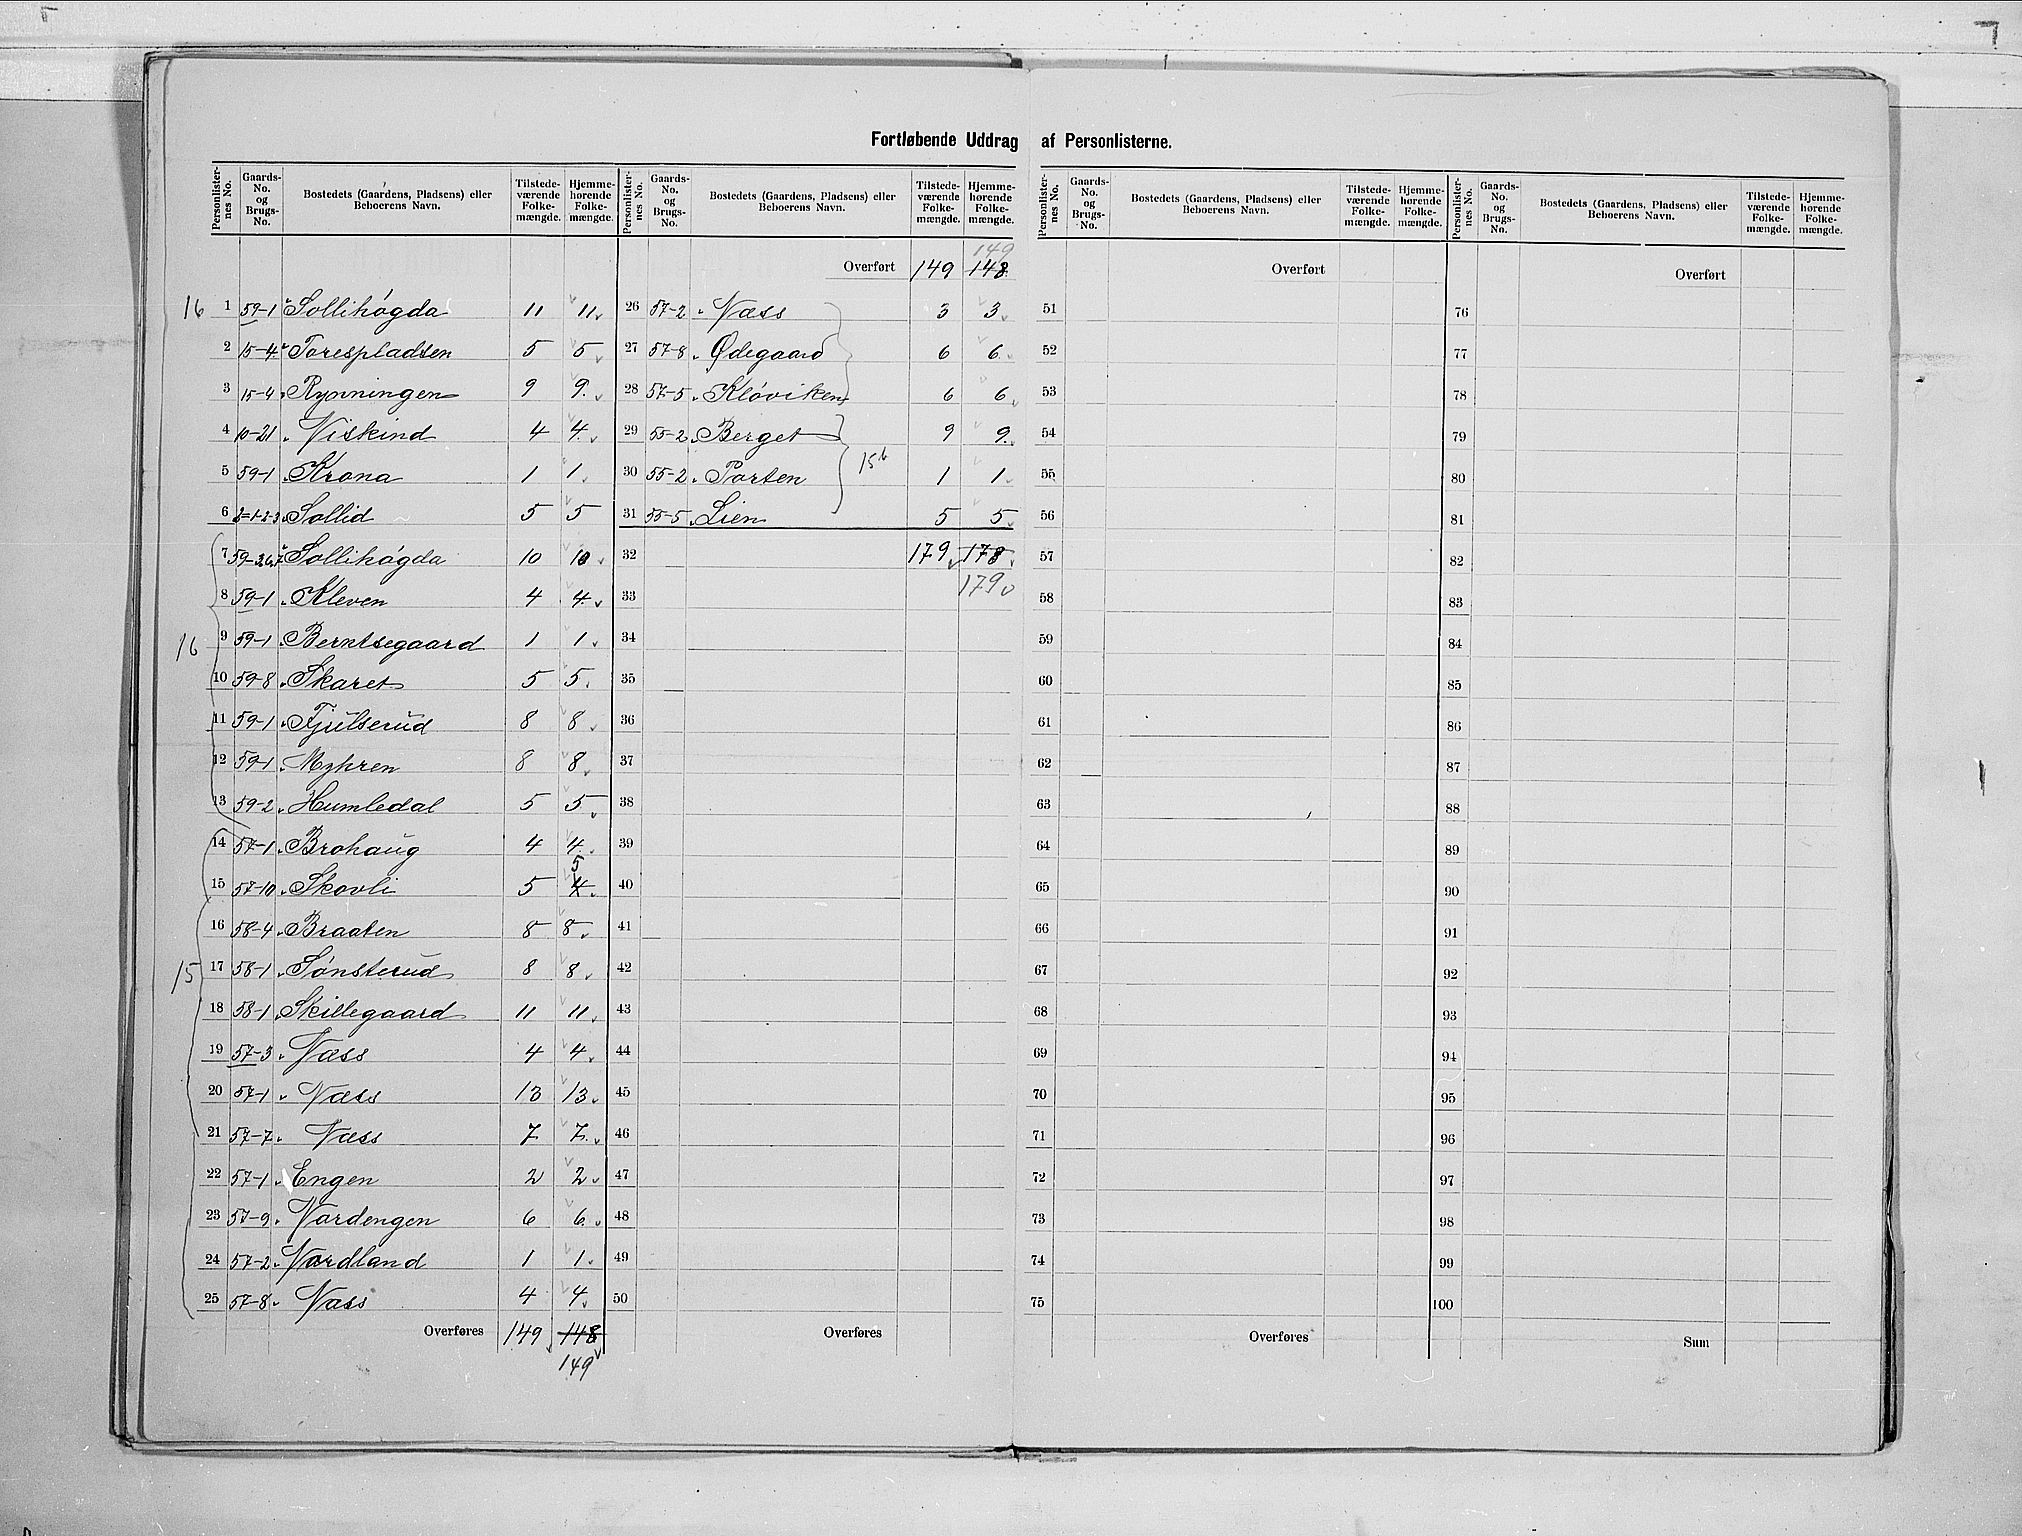 Fortløbende Uddrag af Personlisterne.
Personlisternes No. | Gaards-No. og Brugs-No. | Bostedets (Gaardens, Pladsens) eller Beboerens Navn. | Tilstedeværende Folkemængde. | Hjemmehørende Folkemængde.
16
1 59-1 Sollihøgda 11 11
2 15-4 Torespladsen 5 5
3 15-4 Rynningen 9 9
4 10-21 Viskind 4 4
5 59-1 Krona 1 1
6 2=1-2-3 Sollid 5 5
7 59-3,6,7 Sollihøgda 10 10
8 59-1 Kleven 4 4
16
9 59-1 Berntsegaard 1 1
10 59-8 Skaret 5 5
11 59-1 Fjulserud 8 8
12 59-1 Myhren 8 8
13 59-2 Humledal 5 5
14 57-1 Brohaug 4 4
5
15 57-10 Skovli 5 4
16 58-4 Braaten 8 8
15
17 58-1 Sønsterud 8 8
18 58-1 Skillegaard 11 11
19 57-3 Næss 4 4
20 57-1 Næss 13 13
21 57-7 Næss 7 7
22 57-1 Engen 2 2
23 57-9 Nordengen 6 6
24 57-2 Nordland 1 1
25 57-8 Næss 4 4
Overføres 149 148
149
Personlisternes No. | Gaards-No. og Brugs-No. | Bostedets (Gaardens, Pladsens) eller Beboerens Navn. | Tilstedeværende Folkemængde. | Hjemmehørende Folkemængde.
149
Overført 149 148
26 57-2 Næss 3 3
27 57-8 Ødegaard 6 6
28 57-5 Kløviken 6 6
29 55-2 Berget 9 9
15b
30 55-2 Porten 1 1
31 55-5 Lien 5 5
32 179 178
33 179
34
35
36
37
38
39
40
41
42
43
44
45
46
47
48
49
50
Overføres
Personlisternes No. | Gaards-No. og Brugs-No. | Bostedets (Gaardens, Pladsens) eller Beboerens Navn. | Tilstedeværende Folkemængde. | Hjemmehørende Folkemængde.
Overført
51
52
53
54
55
56
57
58
59
60
61
62
63
64
65
66
67
68
69
70
71
72
73
74
75
Overføres
Personlisternes No. | Gaards-No. og Brugs-No. | Bostedets (Gaardens, Pladsens) eller Beboerens Navn. | Tilstedeværende Folkemængde. | Hjemmehørende Folkemængde.
Overført
76
77
78
79
80
81
82
83
84
85
86
87
88
89
90
91
92
93
94
95
96
97
98
99
100
Sum